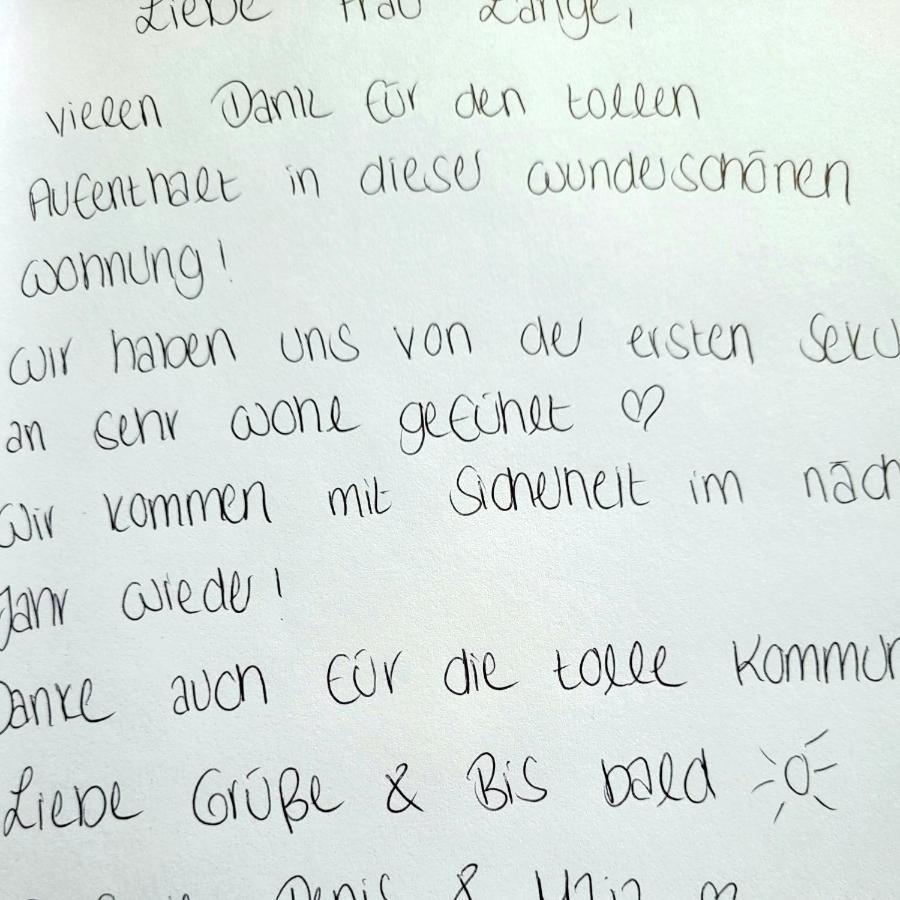 Liebe Frau Lange,
vielen Dank für den tollen
Aufenthalt in dieser wunderschönen
Wohnung!
Wir haben uns von der ersten Seku
an sehr wohl gefühlt ♡
Wir kommen mit Sicherheit im näch
Jahr wieder!
Danke auch für die tolle Kommun
Liebe Grüße & Bis bald
Denis &